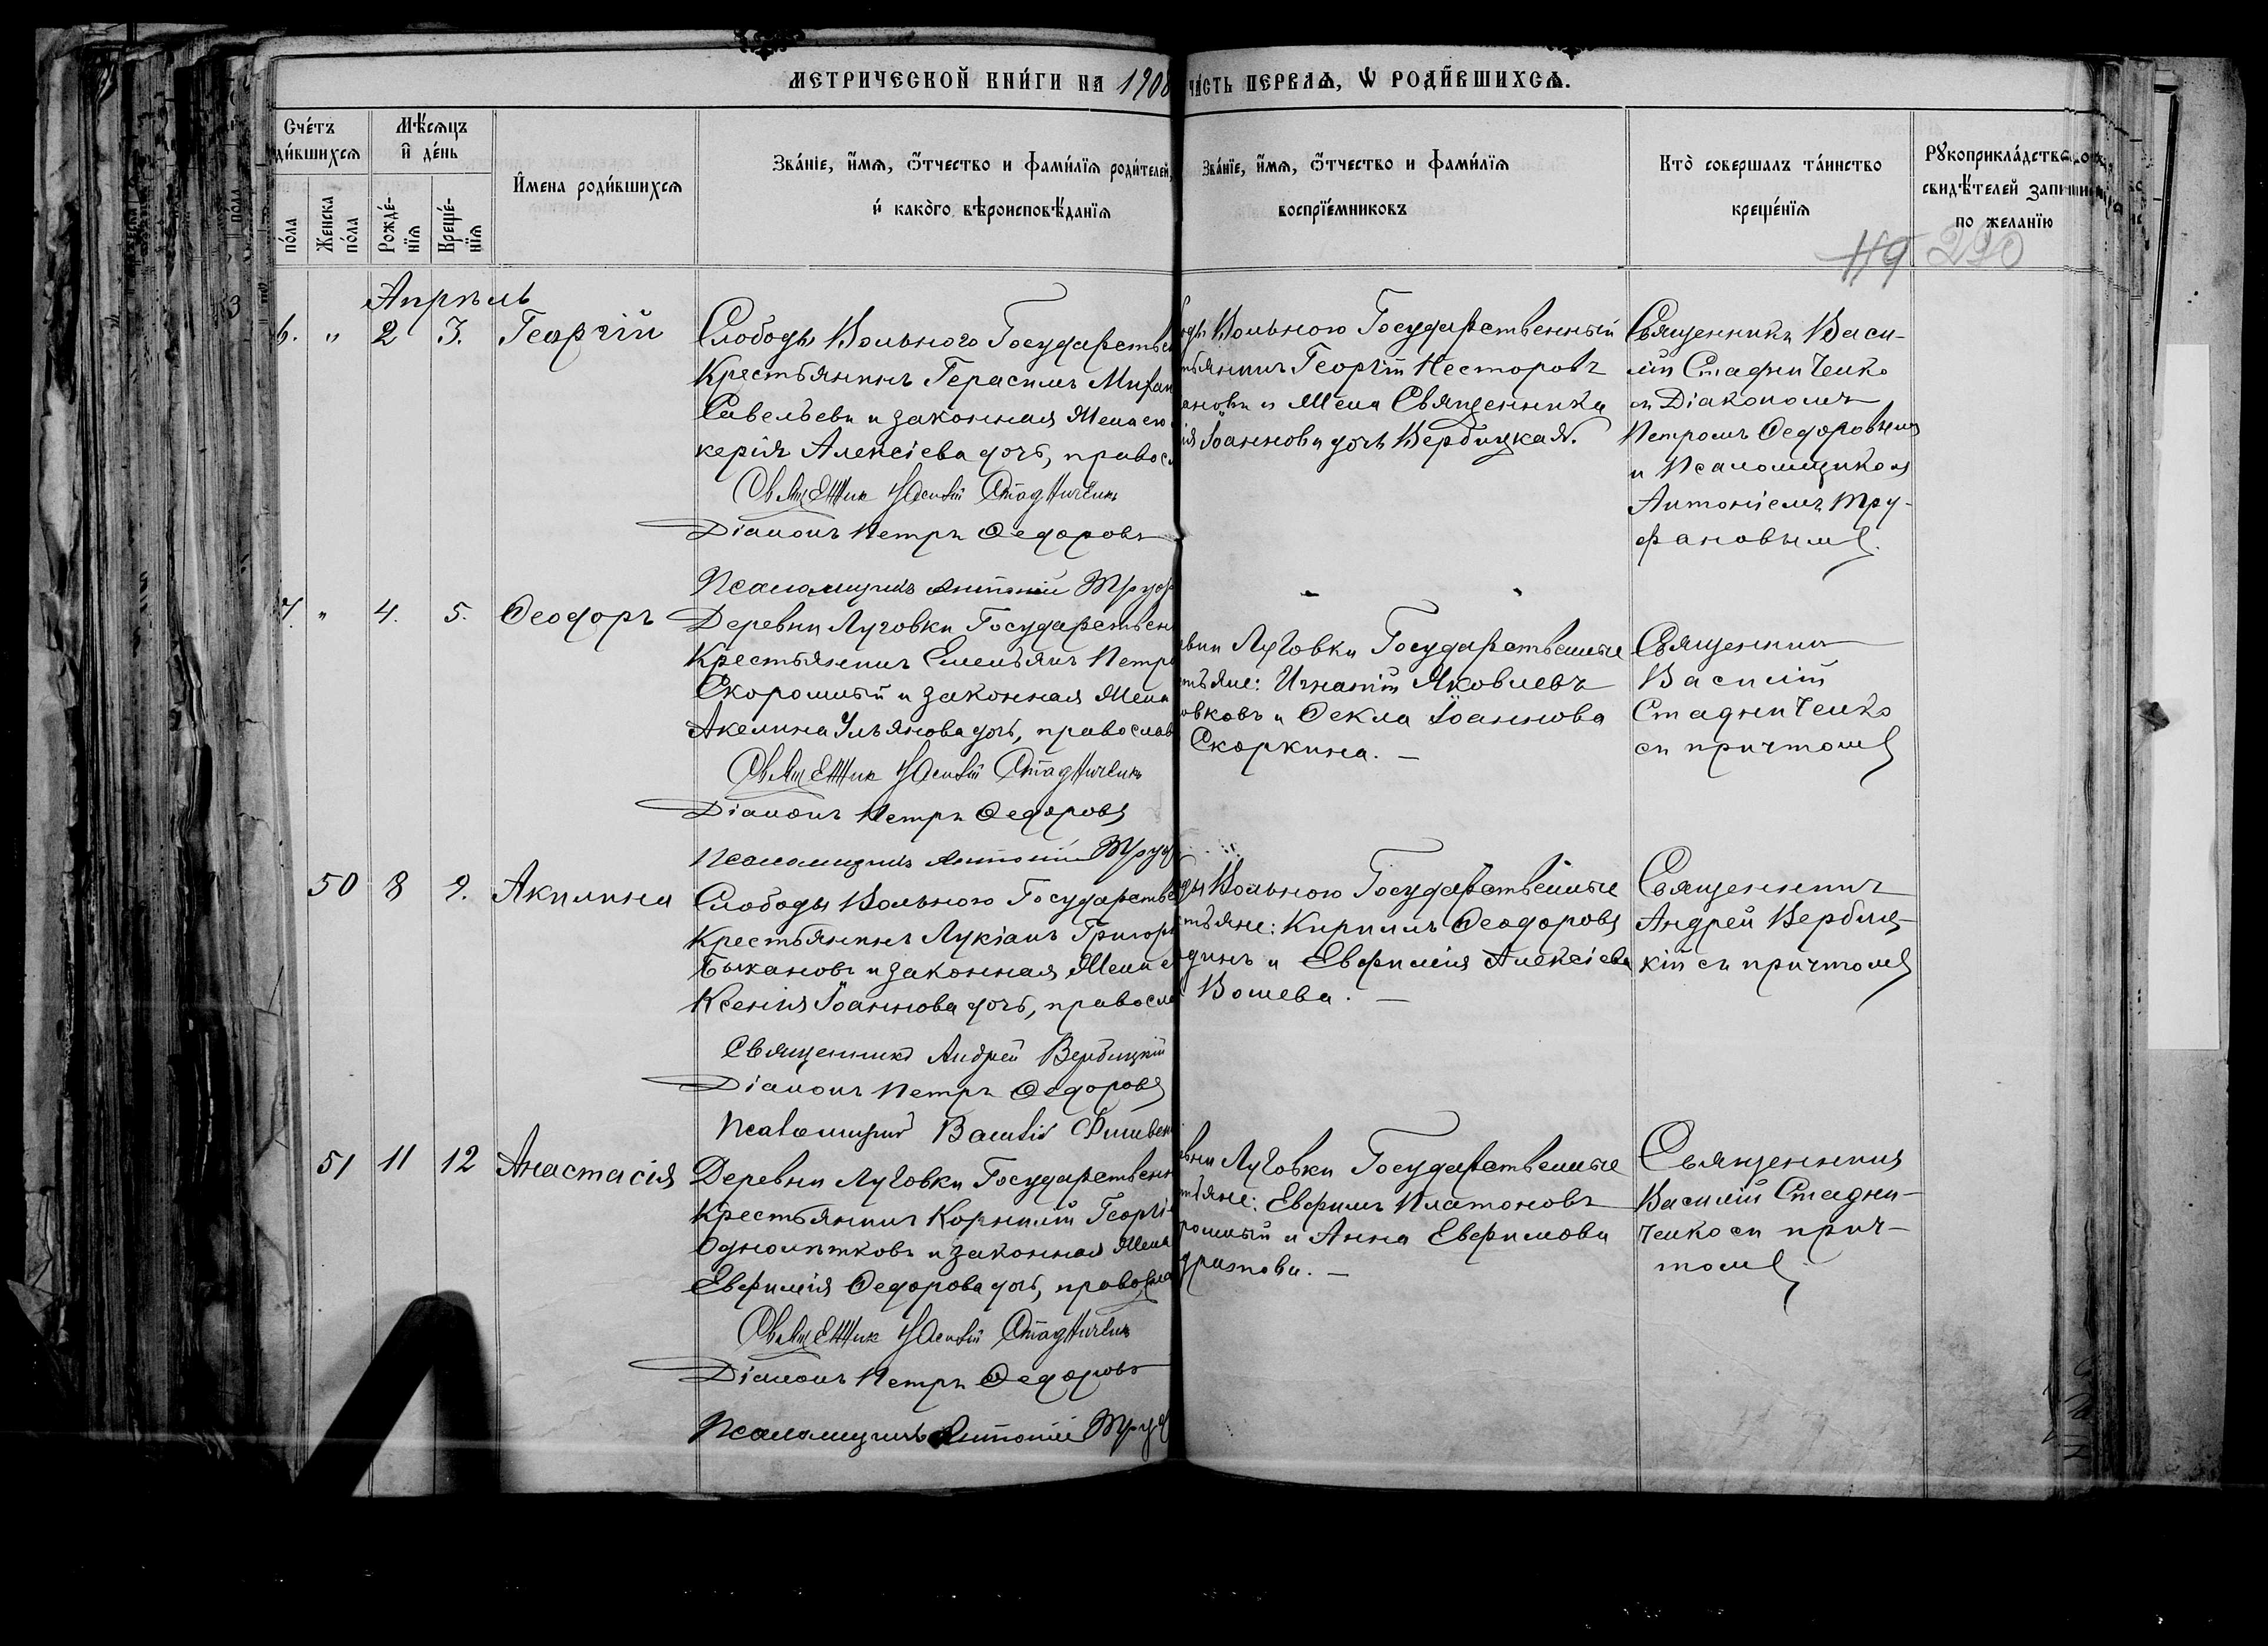 МЕТРИЧЕСКОЙ КНИ́ГИ НА 1908
ЧА́СТЬ ПЕРВАѦ, Ѿ РОДИ́ВШИХСѦ.
Сче́тъ
ди́вшихсѧ
по́ла
Женска по́ла
Мѣ́сѧцъ и҆ де́нь
Рожде́-нїѧ
Креще́-нїѧ
И҆́мена роди́вшихсѧ
Зва́нїе, и҆́мѧ, ѻ҆́тчество и фами́лїѧ роди́телей,
и҆ како́го вѣроисповѣ́данїѧ
Зва́нїе, и҆́мѧ, ѻ҆́тчество и фами́лїѧ
воспрїе́мниковъ
Кто̀ совершалъ та́инство
креще́нїѧ
Рꙋкоприкла́дство
свидѣ́телей
по желанїю
119 290
Апрѣль
6. " 2 3. Георгій
Слободы Вольного Государствен
Крестьянинъ Герасимъ Михаи
Савельевъ и законная Жена его
керія Алексіева дочь, правосл
Священник Василій Стадниченко
Діаконъ Петръ Ѳедоровъ
Псаломщикъ Антоній Труф
ды Вольного Государственный
тьянинъ Георгій Несторовъ
ановъ и Жена Священника
ія Іоаннова дочь Вербицкая.
Священникъ Васи-
лій Стадниченко
съ Діакономъ
Петромъ Ѳедоровымъ
и Псаломщикомъ
Антоніемъ Тру-
фановымъ.
7. " 4. 5. Ѳеодоръ
Деревни Луговки Государствен
Крестьянинъ Емельянъ Петр
Скоромный и законная Жена
Акелина Ульянова дочь, православ
Священник Василій Стадниченко
Діаконъ Петръ Ѳедоровъ
Псаломщикъ Антоній Труф
вни Луговки Государственные
стьяне: Игнатій Яковлевъ
овковъ и Ѳекла Іоаннова
Скоркина. —
Священникъ
Василій
Стадниченко
съ причтомъ
50 8 9. Акилина
Слободы Вольного Государстве
Крестьянинъ Лукіанъ Григорь
Быкановъ и законная Жена е
Ксенія Іоаннова дочь, правосла
Священникъ Андрей Вербицкій
Діаконъ Петръ Ѳедоровъ
Псаломщикъ Василій
ды Вольного Государственные
стьяне: Кириллъ Ѳеодоровъ
динъ и Евфимія Алексіева
Вошева. —
Священникъ
Андрей Вербиц-
кій съ причтомъ
51 11 12 Анастасія
Деревни Луговки Государственн
Крестьянинъ Корнилій Георгі
Однолѣтковъ и законная Жена
Евфимія Ѳедорова дочь, правосла
Священник Василій Стадниченко
Діаконъ Петръ Ѳедоровъ
Псаломщикъ Антоній Труф
вни Луговки Государственные
тьяне: Евфимъ Платоновъ
ромный и Анна Евфимова
дратова. —
Священникъ
Василій Стадни-
ченко съ прич-
томъ